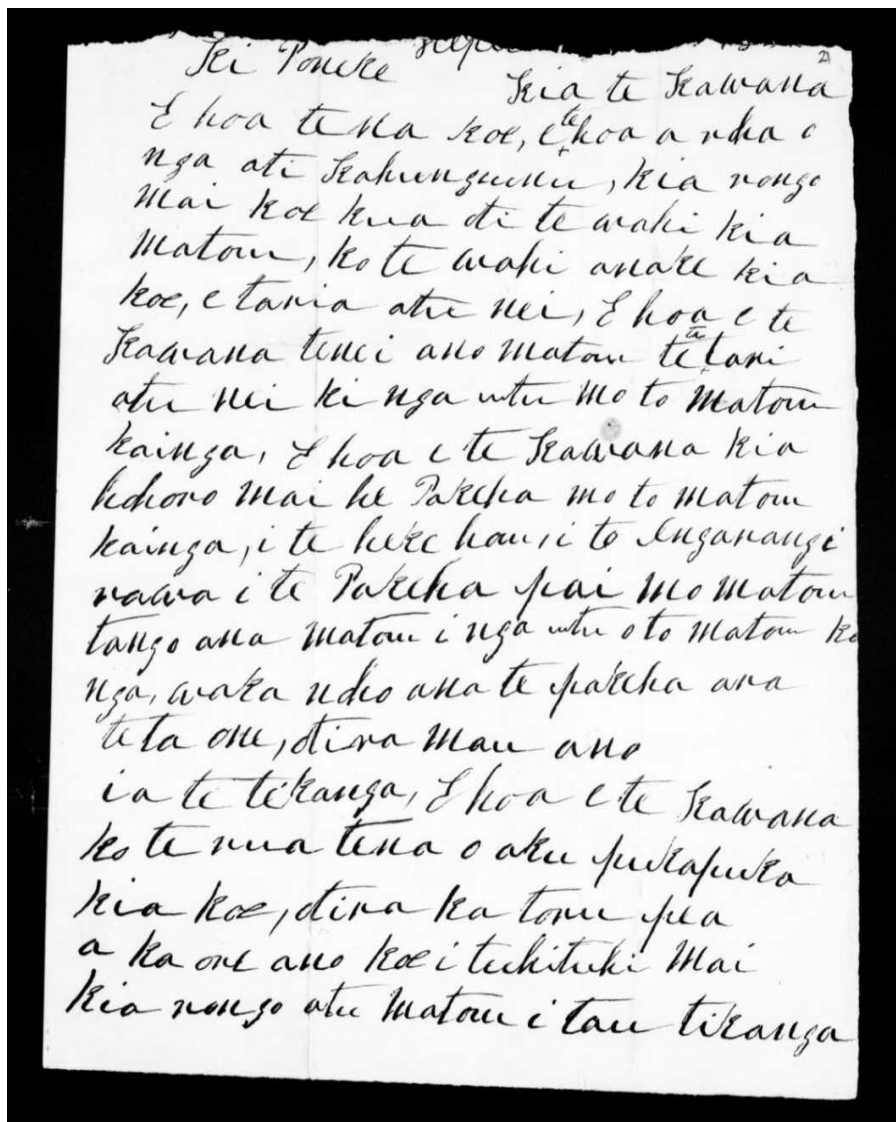 2
Ki Poneke
Kia te Kawana
E hoa tena koe, e te hoa a
nga ati Kahungunu, kia rongo
mai koe kua oti te wahi kia
matou, ko te wahi anake kia
koe, e taria atu nei, E hoa e te
Kawana tenei ano matou te tari
atu nei ki nga utu mo to matou
kainga, E hoa e te Kawana kia
hohoro mai he Pakeha mo to matou
kainga, i te heke hou, i te Ingarangi
rawa i te Pakeha pai mo matou
tango ana matou i nga utu o to matou
nga, waka noho ana te pakeha ana
te ta one, otira mau ano
ia te tikanga, E hoa e te Kawana
ko te rua tena o aku pukapuka
kia koe, otira ka toru pea
a ka ore ano koe i tuhituhi mai
kia rongo atu matou i tau tikanga